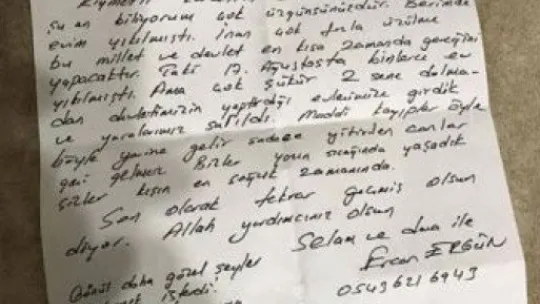 Kıymetli
şu an biliyorum çok üzgünsünüzdür. Benimde
evim yıkılmıştı. İnan çok fazla üzülme
bu millet ve devlet en kısa zamanda gereğini
yapacaktır. Tabi 17 Ağustosta binlerce ev
yıkılmıştı. Ama çok şükür 2 sene dolma-
dan devletimizin yaptırdığı evlerimize girdik
ve yaralarımız sarıldı. Maddi kayıplar öyle
böyle yerine gelir sadece yitirilen canlar
geri gelmez. Bizler yazın sıcağında yaşadık
sizler kışın en soğuk zamanında.
Son olarak tekrar geçmiş olsun
diyor. Allah yardımcınız olsun
Selam ve dua ile
Ercan ERGÜN
0543 621 6943
Gönül daha güzel şeyler
isterdi.